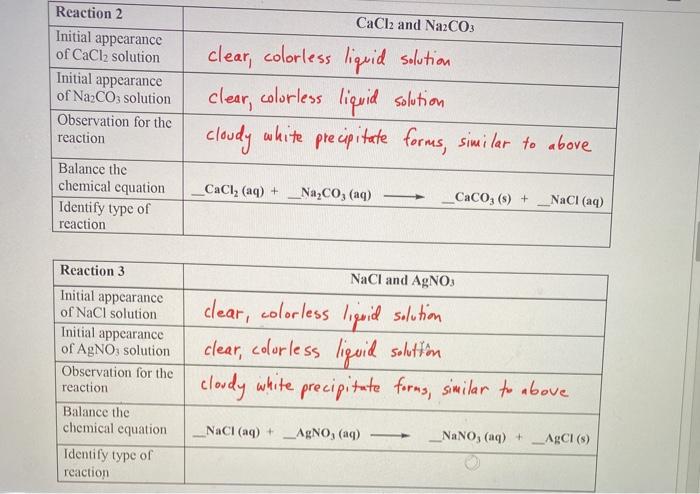 Reaction 2
CaCl₂ and Na₂CO₃
Initial appearance
of CaCl₂ solution
clear, colorless liquid solution
Initial appearance
of Na₂CO₃ solution
clear, colorless liquid solution
Observation for the
reaction
cloudy white precipitate forms, similar to above
Balance the
chemical equation
_CaCl₂ (aq) + _Na₂CO₃ (aq) ⟶ _CaCO₃ (s) + _NaCl (aq)
Identify type of
reaction
Reaction 3
NaCl and AgNO₃
Initial appearance
of NaCl solution
clear, colorless liquid solution
Initial appearance
of AgNO₃ solution
clear, colorless liquid solution
Observation for the
reaction
cloudy white precipitate forms, similar to above
Balance the
chemical equation
_NaCl (aq) + _AgNO₃ (aq) ⟶ _NaNO₃ (aq) + _AgCl (s)
Identify type of
reaction